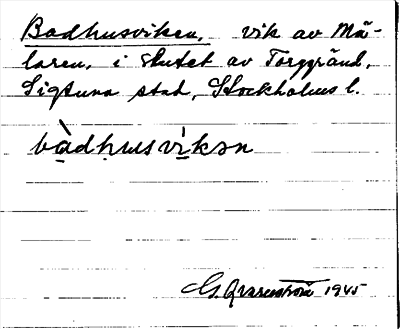 Badhusviken, vik av Mä-
laren, i slutet av Torggränd,
Sigtuna stad, Stockholms l.
bàdhusvìkən
G. Qvarnström 1945